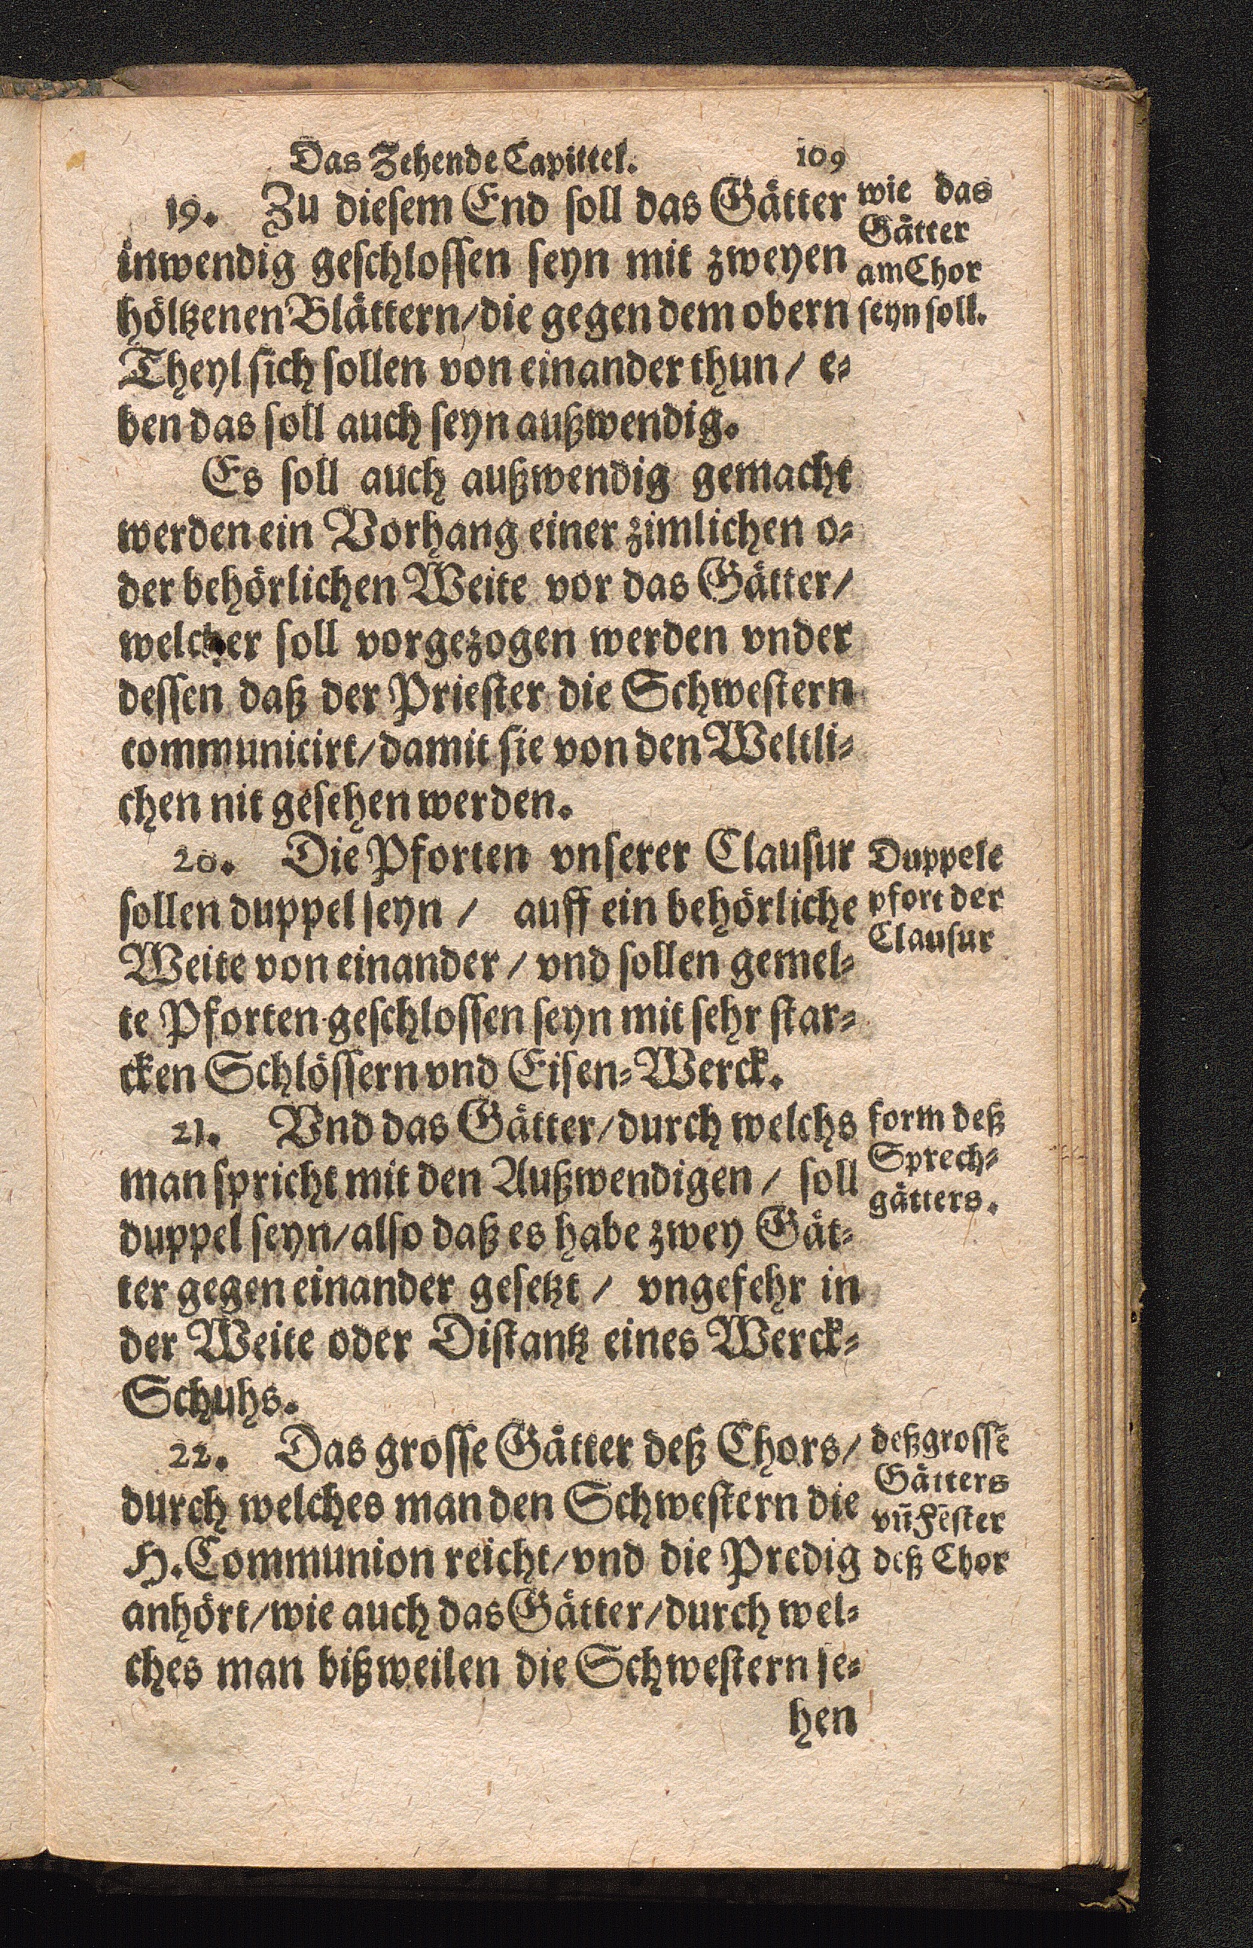 Das Zehende Capittel. 109
19. Zu diesem End soll das Gätter
inwendig geschlossen seyn mit zweyen
höltzenen Blättern/die gegen dem obern
Theyl sich sollen von einander thun/ e-
ben das soll auch seyn außwendig.
wie das
Gätter
am Chor
seyn soll.
Es soll auch außwendig gemacht
werden ein Vorhang einer zimlichen o-
der behörlichen Weite vor das Gätter/
welcher soll vorgezogen werden vnder
dessen daß der Priester die Schwestern
communicirt/damit sie von den Weltli-
chen nit gesehen werden.
20. Die Pforten vnserer Clausur
sollen duppel seyn / auff ein behörliche
Weite von einander / vnd sollen gemel-
te Pforten geschlossen seyn mit sehr star-
cken Schlössern vnd Eisen-Werck.
Duppele
pfort der
Clausur
21. Vnd das Gätter/durch welchs
man spricht mit den Außwendigen / soll
duppel seyn/also daß es habe zwey Gät-
ter gegen einander gesetzt / vngefehr in
der Weite oder Distantz eines Werck-
Schuhs.
form deß
Sprech-
gätters.
22. Das grosse Gätter deß Chors/
durch welches man den Schwestern die
H. Communion reicht/vnd die Predig
anhört/wie auch das Gätter/durch wel-
ches man bißweilen die Schwestern se-
deß grossẽ
Gätters
vñ Fẽster
deß Chor
hen